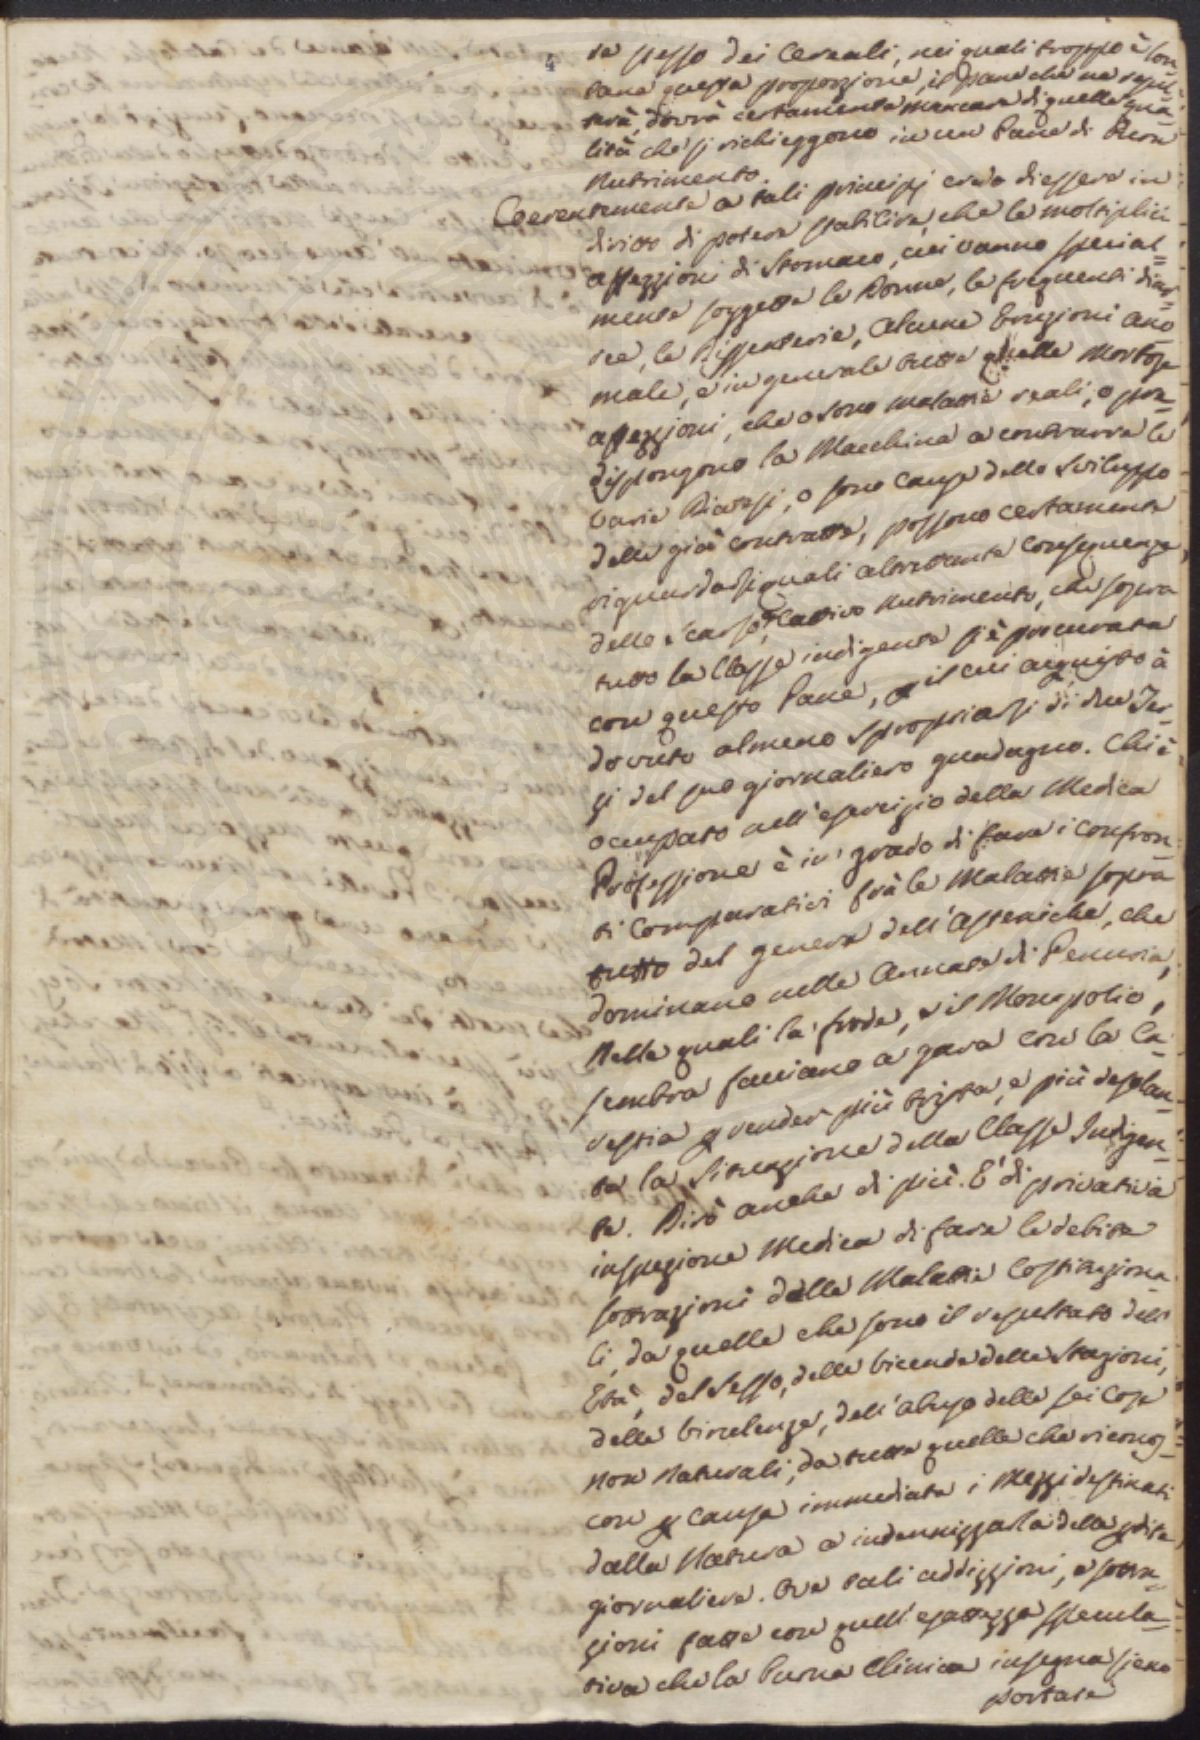 4
se stesso dei Cereali, nei quali troppo è lon-
tana questa proporzione, il Pane che ne resul-
terà, dovrà certamente mancare di quelle qua-
lità che si richieggono in un Pane di buon
Nutrimento.
Coerentemente a tali principj credo di essere in
diritto di potere stabilire, che le moltiplici
affezzioni di Stomaco, cui vanno special-
mente soggette le Donne, le frequenti diar-
ree, le Dissenterie, alcune Eruzioni ano
male, e in generale tutte quelle Morbose
affezzioni, che o sono malattie reali, o pre-
dispongono la Macchina a contrarre le
varie Diatesi, o sono Cause dello Sviluppo
delle già contratte, possono certamente
riguardarsi quali altrettante Conseguenze
dello Scarso, e Cattivo Nutrimento, che sopra
tutto la Classe indigente si è procurata
con questo Pane, il cui acquisto à
dovuto almeno spropriarsi di due Ter-
zi del suo giornaliero guadagno. Chi è
occupato nell'esercizio della Medica
Professione è in grado di fare i confron-
ti Comparativi frà le Malattie sopra
tutto del genere dell'asteniche, che
dominano nelle Annate di Penuria,
Nelle quali la frode, e il Monopolio,
sembra facciano a gara con la Ca-
restia p render più trista, e più desolan-
te la Situazione della Classe Indigen-
te. Dirò anche di più. E' di privativa
inspezione Medica di fare le debite
sottrazioni delle Malattie Costituziona-
li, da quelle che sono il resultato dell'
Età, del Sesso, delle vicende delle Stagioni,
delle virulenze, dell'abuso delle sei Cose
non Naturali, da tutte quelle che ricono-
con p Causa immediata i Mezzi destinati
dalla Natura a indennizzarla della pdite
giornaliere. Ove tali addizzioni, e sottra-
zioni fatte con quell'esattezza specula-
tiva che la buona Clinica insegna sieno
portate